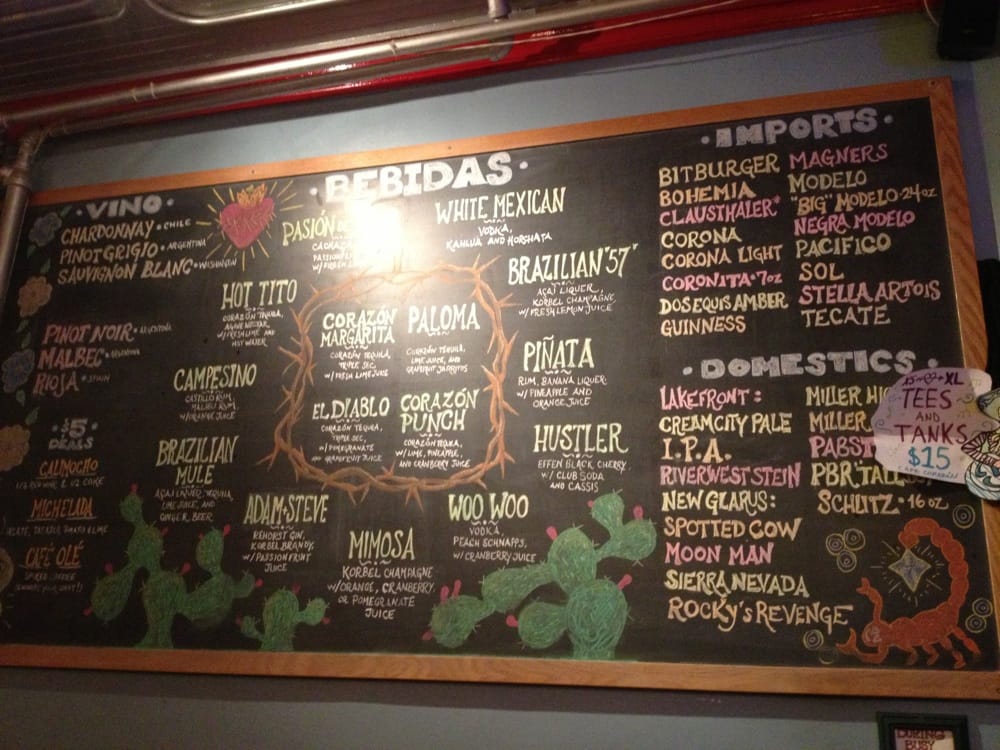 • VINO •
CHARDONNAY • CHILE
PINOT GRIGIO • ARGENTINA
SAUVIGNON BLANC • WASHINGTON
PINOT NOIR • ARGENTINA
MALBEC • ARGENTINA
RIOJA • SPAIN
$5
DEALS
CALIMOCHO
1/2 RED WINE & 1/2 COKE
MICHELADA
CAFÉ OLÉ
SPIKED COFFEE
• BEBIDAS •
PASIÓN DE
W/ FRESH
WHITE MEXICAN
VODKA,
KAHLUA AND HORSHATA
HOT TITO
CORAZÓN TEQUILA,
AGAVE NECTAR,
W/ FRESH LIME AND
HOT WATER
BRAZILIAN "57"
AÇAÍ LIQUER,
KORBEL CHAMPAGNE,
W/ FRESH LEMON JUICE
CORAZÓN
MARGARITA
CORAZÓN TEQUILA,
TRIPLE SEC,
W/ FRESH LIME JUICE
PALOMA
CORAZÓN TEQUILA,
LIME JUICE, AND
GRAPEFRUIT JARRITOS
CAMPESINO
CASTILLO RUM,
MALIBU RUM,
W/ ORANGE JUICE
PIÑATA
RUM, BANANA LIQUER
W/ PINEAPPLE AND
ORANGE JUICE
EL DIABLO
CORAZÓN TEQUILA,
TRIPLE SEC,
W/ POMEGRANATE
AND GRAPEFRUIT JUICE
CORAZÓN
PUNCH
CORAZÓN TEQUILA,
W/ LIME, PINEAPPLE,
AND CRANBERRY JUICE
BRAZILIAN
MULE
AÇAÍ LIQUER, TEQUILA,
LIME JUICE, AND
GINGER BEER
HUSTLER
EFFEN BLACK CHERRY,
W/ CLUB SODA
AND CASSIS
ADAM & STEVE
REHORST GIN,
KORBEL BRANDY,
W/ PASSIONFRUIT
JUICE
MIMOSA
KORBEL CHAMPAGNE
W/ ORANGE, CRANBERRY
OR POMEGRANATE
JUICE
WOO WOO
VODKA,
PEACH SCHNAPPS,
W/ CRANBERRY JUICE
• IMPORTS •
BITBURGER
BOHEMIA
CLAUSTHALER*
CORONA
CORONA LIGHT
CORONITA • 7oz
DOS EQUIS AMBER
GUINNESS
MAGNERS
MODELO
"BIG" MODELO • 24oz
NEGRA MODELO
PACIFICO
SOL
STELLA ARTOIS
TECATE
• DOMESTICS •
LAKEFRONT:
CREAM CITY PALE
I.P.A.
RIVERWEST STEIN
NEW GLARUS:
SPOTTED COW
MOON MAN
SIERRA NEVADA
ROCKY'S REVENGE
MILLER HI
MILLER
PABST
PBR "TALL
SCHLITZ • 16oz
XL
TEES
AND
TANKS
$15
CAFE CORAZÓN
DURING
BUSY